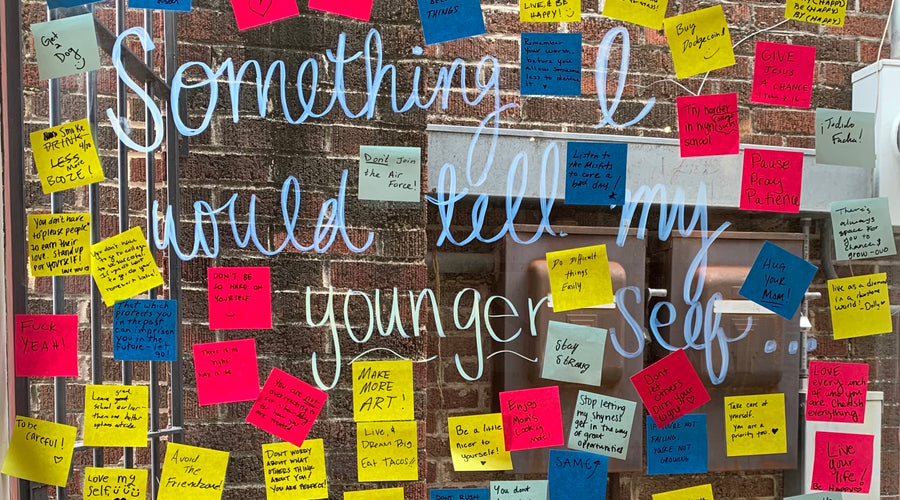 Something I
would tell my
younger self...
Get
a
Dog
LIVE & BE
HAPPY!
BUY
Dodgecoin!
GIVE
JESUS
A CHANCE
Remember
Your worth
before you
allow someone
less to define
it.
Try harder
in high
school
¡Todido
Pasha!
Smoke
LESS
more
BOOZE!
Don't Join
the Air
Force!
Listen to
the Misfits
to cure a
bad day!
Pause
Pray
Patience
There's
always
space for
you to
change &
grow
You don't have
to please people
to earn their
love. Stand up
FOR YOURSELF!
DON'T BE
SO HARD ON
YOURSELF.
Do difficult
things
Emily
HUG
YOUR
MOM!
live as a diamond
in a rhinestone
world!
-Dolly
That which
protects you
in the past
can imprison
you in the
future - let
go!
FUCK
YEAH!
There is no
right
way to be.
Stay
Strong
MAKE
MORE
ART!
Don't let
others
Dim your
light
LOVE
every inch of
who you
are cherish
everything.
You are not
Enjoy
Mom's
Cooking
Stop letting
my shyness
get in the way
of great
opportunities
Take care of
yourself.
You are a
priority too.
Leave good
school earlier-
To be
careful!
LIVE, &
Dream Big
Eat Tacos!!
Be a little
nicer to
yourself!
FAILING,
YOU'RE NOT
GROWING
Live
your
life!
BE HAPPY
Avoid the
Friendzone!
DON'T WORRY
ABOUT WHAT
OTHERS THINK
ABOUT YOU!
YOU ARE PERFECT!
SAME
Love my
self
You don't